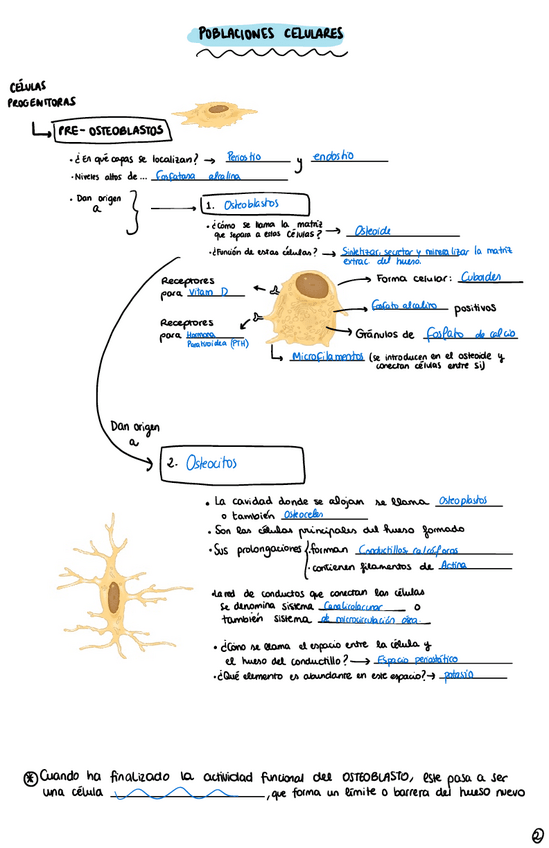 POBLACIONES CELULARES
CÉLULAS
PROGENITORAS
PRE-OSTEOBLASTOS
· ¿En qué capas se localizan? → Periostio y endostio
· Niveles altos de... Fosfatasa alcalina
· Dan origen
a
1. Osteoblastos
· ¿Cómo se llama la matriz
que separa a estas células? → Osteoide
· ¿Función de estas células? → Sintetizar, secretar y mineralizar la matriz
extrac. del hueso
Receptores
para Vitam D
Forma celular: Cuboides
Fosfato alcalino positivos
Receptores
para Hormona
Paratiroidea (PTH)
Gránulos de fosfato de calcio
Microfilamentos (se introducen en el osteoide y
conectan células entre sí)
Dan origen
a
2. Osteocitos
· La cavidad donde se alojan se llama Osteoplastos
o también Osteoceles
· Son las células principales del hueso formado
· Sus prolongaciones · forman Conductillos calcóforos
· contienen filamentos de Actina
· La red de conductos que conectan las células
se denomina sistema Canalicolacunar o
también sistema de microcirculación ósea
· ¿Cómo se llama el espacio entre la célula y
el hueso del conductillo? → Espacio periostótico
· ¿Qué elemento es abundante en este espacio? → potasio
* Cuando ha finalizado la actividad funcional del OSTEOBLASTO, este pasa a ser
una célula , que forma un límite o barrera del hueso nuevo
2